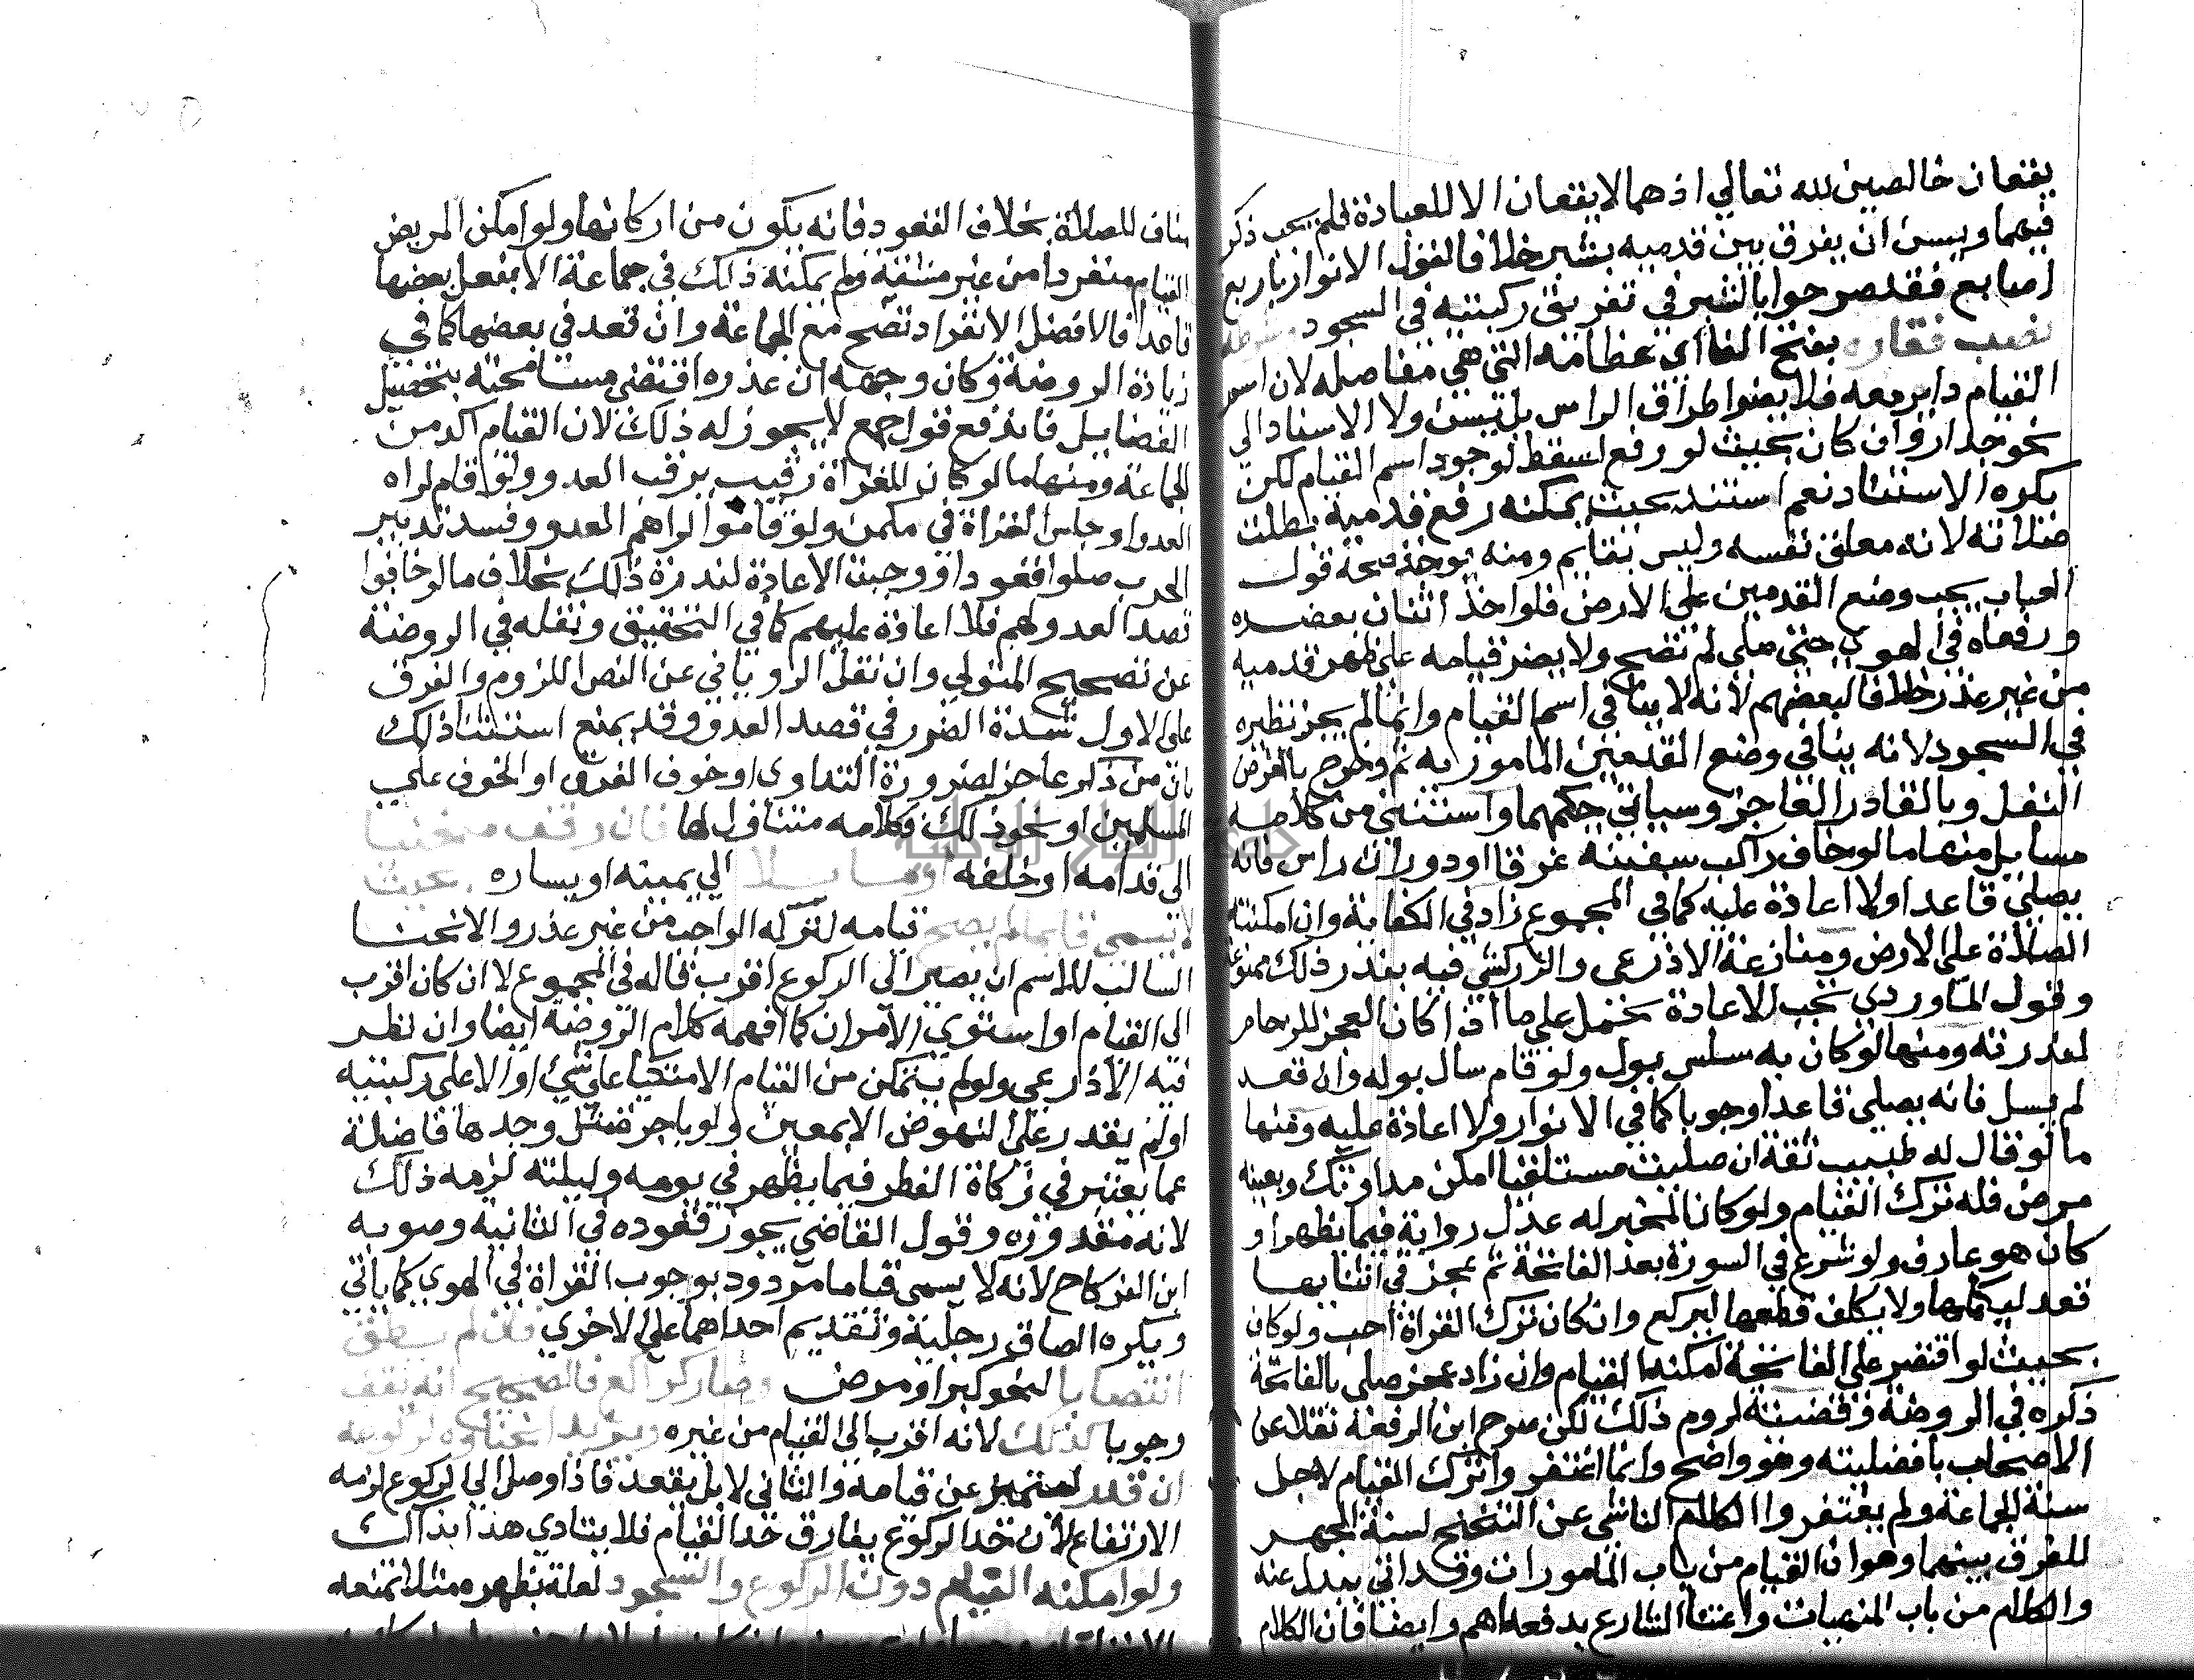 يقعان خالصين لله تعالي اذ هما لا يقعان الا للعبادة فلم يجب ذكر
فيهما ويسن ان يفرق بين قدميه بشبر خلافا لقول الانوار باربع
اصابع فقد صرحوا بالشبر في تفريق ركبتيه في السجود وشرطه
نصب فقاره بفتح الفا اي عظامه التي هي مفاصله لان اسم
القيام داير معه فلا يضر اطراق الراس بل يسن ولا الاستناد الي
نحو جدار وان كان بحيث لو رفع لسقط لوجود اسم القيام لكن
يكره الاستناد نعم استند بحيث يمكنه رفع قدميه بطلت
صلاته لانه معلق نفسه وليس بقايم ومنه يوخذ صحة قول
العباب يجب وضع القدمين علي الارض فلو اخذ اثنان بعضده
ورفعاه في الهوي حتي صلي لم تصح ولا يضر قيامه علي ظهر قدميه
من غير عذر خلافا لبعضهم لانه لا ينافي اسم القيام وانما لم يجز نظيره
في السجود لانه ينافي وضع القدمين المامور به ثم وخرج بالفرض
النفل وبالقادر العاجز وسياتي حكمهما واستثني من كلامه
مسايل منها ما لو خاف راكب سفينة غرقا او دوران راس فانه
يصلي قاعدا ولا اعادة عليه كما في المجموع زاد في الكفاية وان امكنته
الصلاة علي الارض ومنازعة الاذرعي والزركشي فيه بندر ذلك ممنوعة
وقول الماوردي تجب الاعادة يحتمل علي ما اذا كان العجز للزحام
لندرته ومنها لو كان به سلس بول ولو قام سال بوله وان قعد
لم يسل فانه يصلي قاعدا وجوبا كما في الانوار ولا اعادة عليه ومنها
ما لو قال له طبيب ثقة ان صليت مستلقيا امكن مداواتك وبعينه
مرض فله ترك القيام ولو كان المخبر له عدل رواية فيما يظهر او
كان هو عارف ولو شرع في السورة بعد الفاتحة ثم عجز في اثنايها
قعد ليكملها ولا يكلف قطعها ليركع وان كان ترك القراة احب ولو كان
بحيث لو اقتصر علي الفاتحة امكنه القيام وان زاد عجز صلي بالفاتحة
ذكره في الروضة وقضيته لزوم ذلك لكن صرح ابن الرفعة نقلا عن
الاصحاب بافضليته وهو واضح وانما اغتفروا ترك القيام لاجل
سنة الجماعة ولم يغتفروا الكلام الناشي عن التنحنح لسنة الجهر
للفرق بينهما وهو ان القيام من باب المامورات وقد اتي ببدل عنه
والكلام من باب المنهيات واعتنا الشارع بدفعه اهم وايضا فان الكلام
مناف للصلاة بخلاف القعود فانه يكون من اركانها ولو امكن المريض
القيام منفردا من غير مشقة ولم يمكنه ذلك في جماعة الا بفعل بعضها
قاعدا فالافضل الانفراد وتصح مع الجماعة وان قعد في بعضها كما في
زيادة الروضة وكان وجهه ان عذره اقتضي مسامحته بتحصيل
الفضايل فاندفع قول جمع لا يجوز له ذلك لان القيام اكد من
الجماعة ومنها ما لو كان للغزاة رقيب يرقب العدو ولو قام لراه
العدو او جلس الغزاة في مكمن ولو قاموا لراهم العدو وفسد تدبير
الحرب صلوا قعودا ووجبت الاعادة لندرة ذلك بخلاف ما لو خافوا
قصد العدو لهم فلا اعادة عليهم كما في التحقيق ونقله في الروضة
عن تصحيح المتولي وان نقل الروياني عن النص اللزوم والفرق
علي الاول شدة الضرر في قصد العدو وقد يمنع استثنا ذلك
بان من ذكر عاجز لضرورة التداوي او خوف الغرق او الخوف علي
المسلمين او نحو ذلك فكلامه متناول لها فان وقف منحنيا
الي قدامه او خلفه او مايلا الي يمينه او يساره بحيث
لا يسمي قايما لم يصح قيامه لتركه الواجب من غير عذر والانحنا
السالب للاسم ان يصير الي الركوع اقرب قاله في المجموع لا ان كان اقرب
الي القيام او استوي الامران كما افهمه كلام الروضة ايضا وان نظر
فيه الاذرعي ولو لم يتمكن من القيام الا متكيا علي شي او الا علي ركبتيه
او لم يقدر علي النهوض الا بمعين ولو باجرة مثل وجدها فاضلة
عما يعتبر في زكاة الفطر فيما يظهر في يومه وليلته لزمه ذلك
لانه مقدوره وقول القاضي يجوز قعوده في الثانية وصوبه
ابن الفركاح لانه لا يسمي قياما مردود بوجوب القراة في الهوي كما ياتي
ويكره الصاق رجليه وتقديم احداهما علي الاخري فان لم يطق
انتصابا لنحو كبر او مرض وصار كراكع فالصحيح انه يقف
وجوبا كذلك لانه اقرب الي القيام من غيره ويزيد انحناوه لركوعه
ان قدر لتتميز عن قيامه والثاني لا بل يقعد فاذا وصل الي الركوع لزمه
الارتفاع لان حد الركوع يفارق حد القيام فلا يتادي هذا بذاك
ولو امكنه القيام دون الركوع والسجود لعلة بظهره مثلا تمنعه